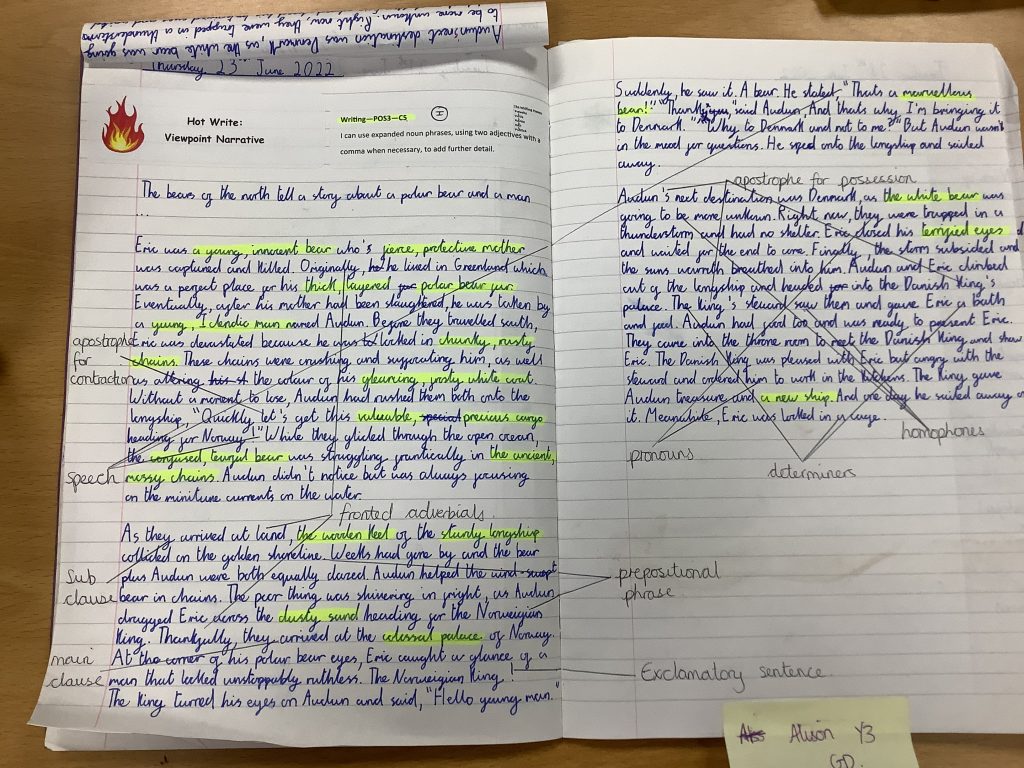 Audun's next destination was Denmark, as the white bear was going
to be more unkown. Right now, they were trapped in a thunderstorm
Thursday 23rd June 2022
Hot Write:
Viewpoint Narrative
Writing—POS3—C5
I
I can use expanded noun phrases, using two adjectives with a
comma when necessary, to add further detail.
The bears of the north tell a story about a polar bear and a man
...
Eric was a young, innocent bear who's fierce, protective mother
was captured and killed. Originally, he lived in Greenland which
was a perfect place for his thick, layered for polar bear fur.
Eventually, after his mother had been slaughtered, he was taken by
a young, Iclendic man named Audun. Before they travelled south,
Eric was devastated because he was to locked in chunky, rusty
chains. These chains were crushing and suffocating him, as well
as altering his st the colour of his gleaming, frosty white coat.
Without a moment to lose, Audun had rushed them both onto the
longship, "Quickly, let's get this valuable, special precious cargo
heading for Norway!" While they glided through the open ocean,
the confused, tearful bear was struggling frantically in the ancient,
mossy chains. Audun didn't notice but was always focusing
on the miniture currents on the water.
As they arrived at land, the wooden keel of the sturdy longship
collided on the golden shoreline. Weeks had gone by and the bear
plus Audun were both equally dazed. Audun helped the wind-swept
bear in chains. The poor thing was shivering in fright, as Audun
dragged Eric across the dusty sand heading for the Norweigian
King. Thankfully, they arrived at the colossal palace of Norway.
At the corner of his polar bear eyes, Eric caught a glance of a
man that looked unstoppably ruthless. The Norweigian King!
The King turned his eyes on Audun and said, "Hello young man."
apostrophe
for
contraction
speech
fronted adverbials
Sub
clause
main
clause
Suddenly, he saw it. A bear. He stated, "Thats a marvellous
bear!" "Thank you," said Audun, And thats why I'm bringing it
to Denmark." "Why to Denmark and not to me?" But Audun wasn't
in the mood for questions. He sped onto the longship and sailed
away.
apostrophe for possession
Audun's next destination was Denmark, as the white bear was
going to be more unkown. Right now, they were trapped in a
thunderstorm and had no shelter. Eric closed his terrified eyes
and waited for the end to come. Finally, the storm subsided and
the suns warmth breathed into him. Audun and Eric climbed
out of the longship and headed for into the Danish King's
palace. The King's steward saw them and gave Eric a bath
and food. Audun had food too and was ready to present Eric.
They came into the throne room to meet the Danish King and show
Eric. The Danish King was pleased with Eric but angry with the
steward and ordered him to work in the kitchens. The King gave
Audun treasure and a new ship. And one day he sailed away on
it. Meanwhile, Eric was locked in a cage.
pronouns
determiners
homophones
prepositional
phrase
Exclamatory sentence
Alison Y3
GD.